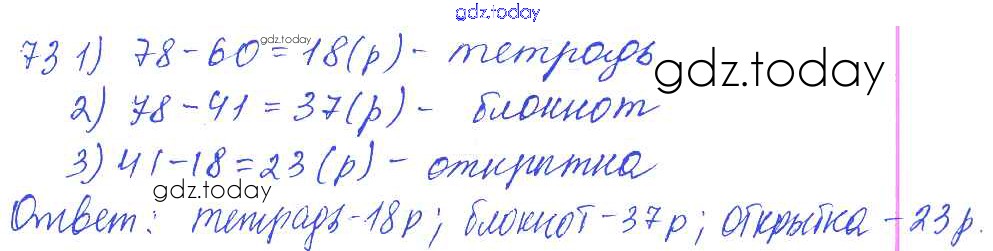 gdz.today
73 1) 78-60=18(р) - тетрадь
gdz.today
gdz.today
2) 78-41=37(р) - блокнот
3) 41-18=23(р) - открытка
gdz.today
Ответ: тетрадь-18р; блокнот-37р; открытка-23р.